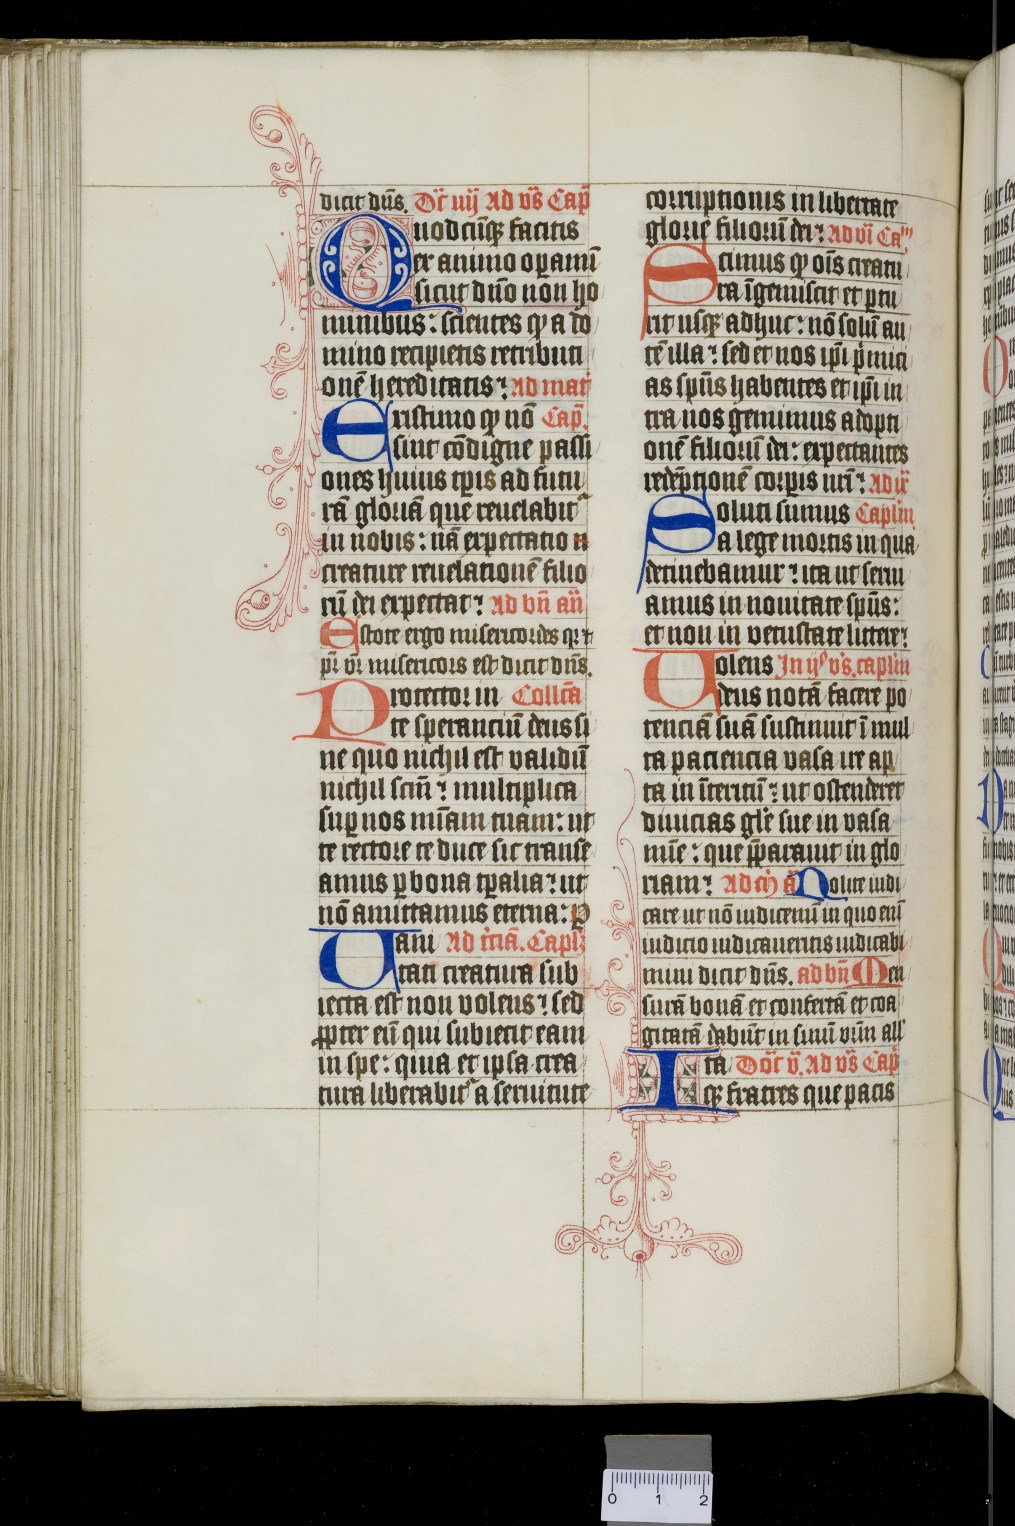 dicit dn̄s. Do̅c iiij Ad vs̄ Cap̄
Quodcūq̢ facitis
ex animo oꝑamī
sicut dn̄o non ho
minibus: scientes qꝫ a do
mino recipietis retributi
onē hereditatis⁊ Ad mat̄
Existimo qꝫ nō Cap̄.
sint cōdigne passi
ones huius tp̄is ad futu
rā gloriā que reuelabit᷑
in nobis: nā expectatio
creature reuelationē filio
rū dei expectat⁊ Ad bn̄ an̄
Estote ergo misericordes
pr̄ vr̄ misericors est dicit dn̄s.
Protector in Collc̄a
te sperancium deus si
ne quo nichil est validū
nichil scm̄⁊ multiplica
suꝑ nos mīam tuam: ut
te rectore te duce sic transe
amus ꝑ bona tp̄alia⁊ ut
nō amittamus eterna: p̄
Uani Ad t̄ciā. Capl̄
tati creatura sub
iecta est non volens⁊ sed
ꝓpter eū qui subiecit eam
in spe: quia et ipsa crea
tura liberabit᷑ a seruitute
corruptionis in libertate
glorie filiorū dei⁊ Ad vi Cam
Scimus qꝫ oīs creatu
ra īgemiscit et ꝑtu
rit usq̢ adhuc: nō solū au
tē illa⁊ sed et nos ip̄i p̄mici
as sp̄us habentes et ip̄i in
tra nos gemimus adopti
onē filiorū dei: expectantes
redēptionē corꝑis nr̄i⁊ Ad ix̄
Soluti sumus Capl̄m
a lege mortis in qua
detinebamur⁊ ita ut serui
amus in nouitate sp̄us:
et non in vetustate littere⁊
Uolens In ijo vs̄. capl̄m
deus notā facere po
tenciā suā sustinuit ī mul
ta paciencia vasa ire ap
ta in īteritū⁊ ut ostenderet
diuicias gl̄e sue in vasa
mīe⁊ que p̄parauit in glo
riam⁊ Ad a̅ Nolite iudi
care ut nō iudicemī in quo enī
iudicio iudicaueritis iudicabi
mini dicit dn̄s. ad bn̄ Men
surā bonā et confertā et coa
gitatā dabūt in sinū vr̄m all̄
Ita Do̅c v. Ad vs̄ Cap̄
q̢ fratres que pacis
0 1 2